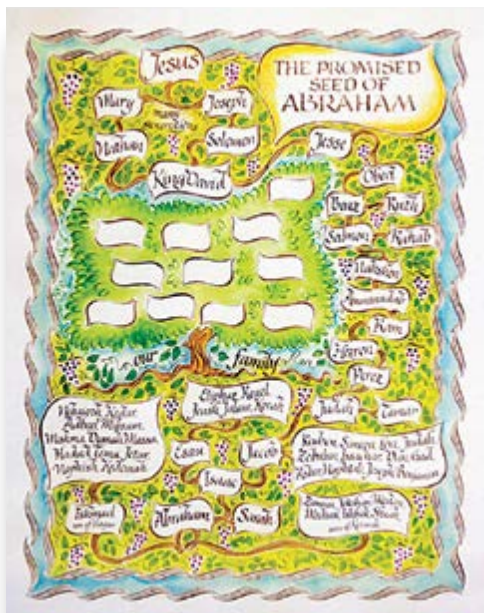 Jesus
THE PROMISED
SEED OF
ABRAHAM
Mary
Joseph
many
generations
Nathan
Solomon
Jesse
King David
Obed
Boaz
Ruth
Salmon
Rahab
Nahson
Aminadab
Ram
Hezron
Perez
our family
Eliphaz Reuel
Jeush Jalam Korah
Judah
Tamar
Nebajoth Kedar
Adbeel Mibsam
Mishma Dumah Massa
Hadad Tema Jetur
Naphish Kedemah
Esau
Jacob
Reuben Simeon Levi Judah
Zebulun Issachar Dan Gad
Asher Naphtali Joseph Benjamin
Isaac
Ishmael
son of Hagar
Abraham
Sarah
Zimran Jokshan Medan
Midian Ishbak Shuah
sons of Keturah